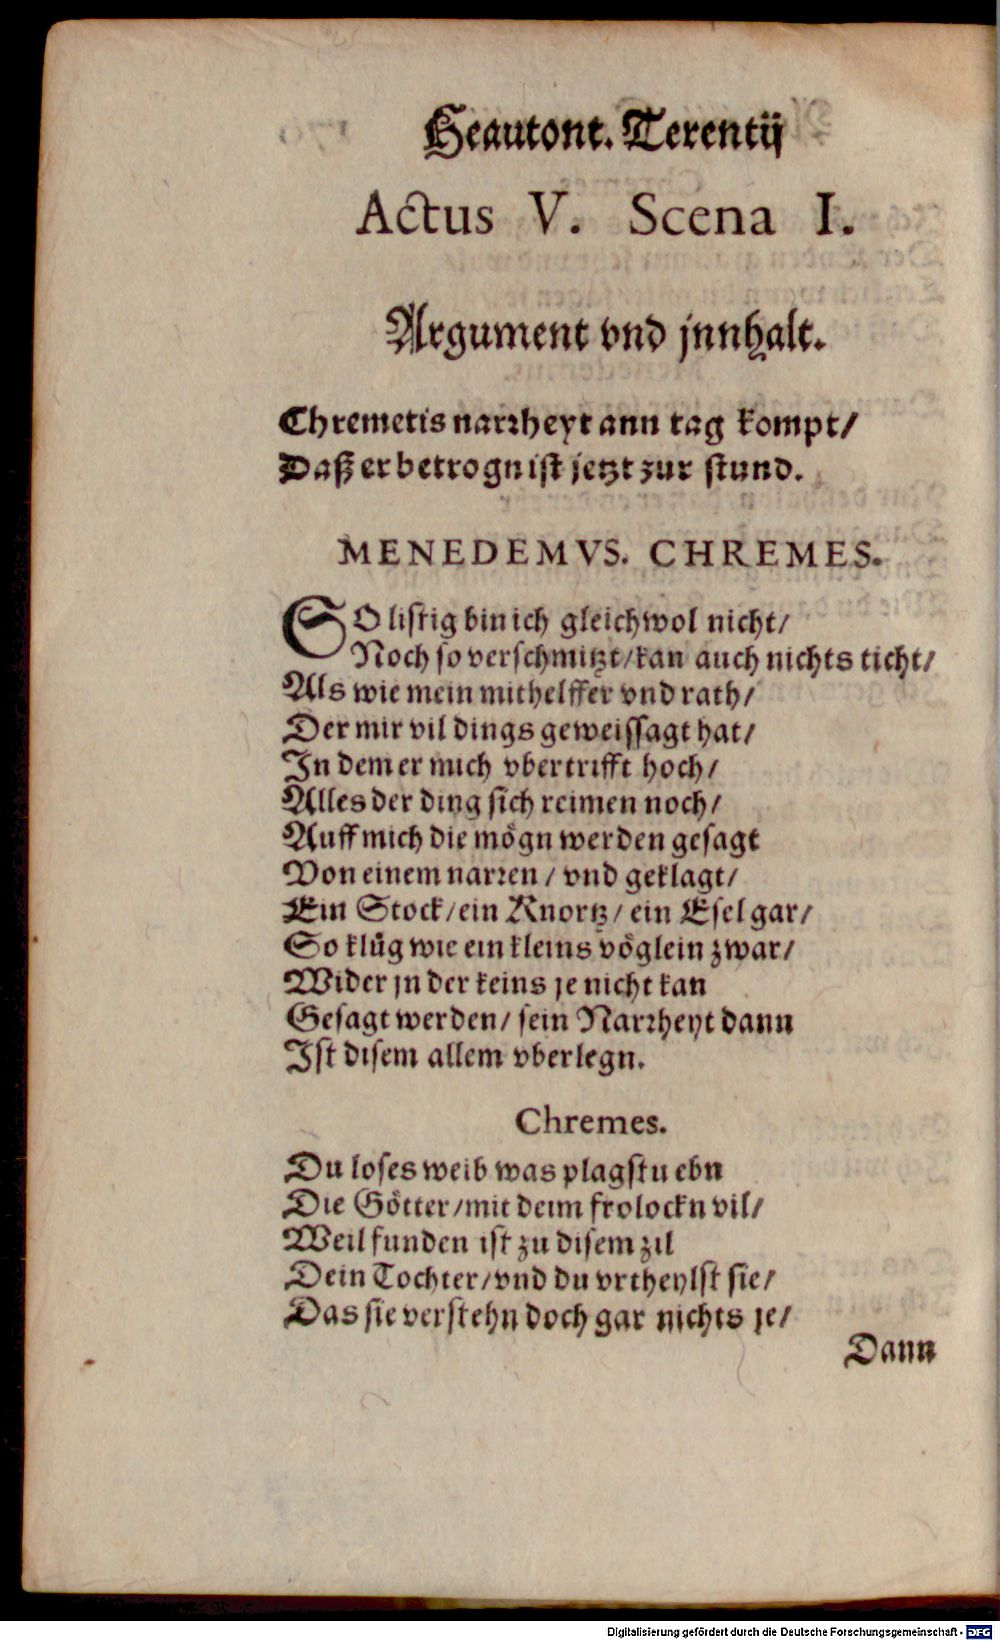 Heautont. Terentij
Actus V. Scena I.
Argument vnd jnnhalt.
Chremetis narrheyt ann tag kompt/
Daß er betrogn ist jetzt zur stund.
MENEDEMVS. CHREMES.
SO listig bin ich gleichwol nicht/
Noch so verschmitzt/kan auch nichts ticht/
Als wie mein mithelffer vnd rath/
Der mir vil dings geweissagt hat/
In dem er mich vbertrifft hoch/
Alles der ding sich reimen noch/
Auff mich die mögn werden gesagt
Von einem narren/ vnd geklagt/
Ein Stock/ein Knortz/ ein Esel gar/
So klůg wie ein kleins vöglein zwar/
Wider jn der keins je nicht kan
Gesagt werden/ sein Narrheyt dann
Ist disem allem vberlegn.
Chremes.
Du loses weib was plagstu ebn
Die Götter/mit deim frolockn vil/
Weil funden ist zu disem zil
Dein Tochter/vnd du vrtheylst sie/
Das sie verstehn doch gar nichts je/
Dann
Digitalisierung gefördert durch die Deutsche Forschungsgemeinschaft - DFG